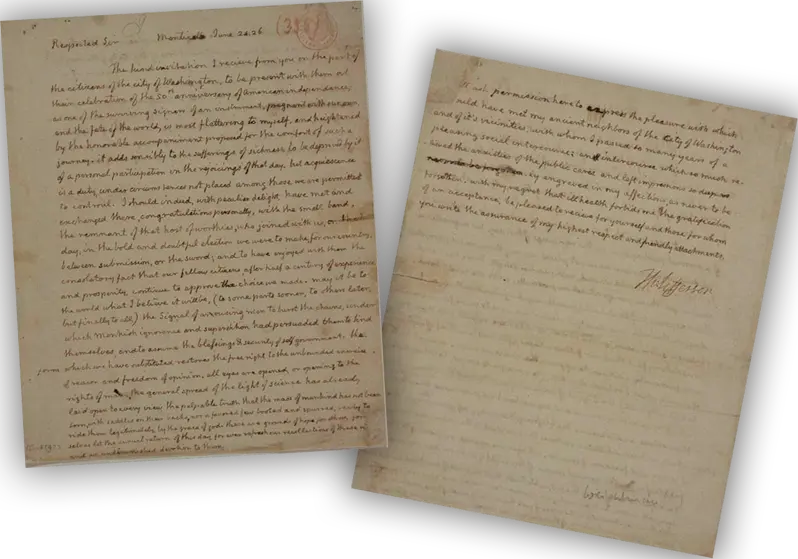 Respected Sir Monticello June 24. 26
The kind invitation I recieve from you on the part of
the citizens of the city of Washington, to be present with them at
their celebration of the 50th anniversary of American independance;
as one of the surviving signers of an instrument, pregnant with our own,
and the fate of the world, is most flattering to myself, and heightened
by the honorable accompaniment proposed for the comfort of such a
journey. it adds sensibly to the sufferings of sickness, to be deprived by it
of a personal participation in the rejoicings of that day. but acquiescence
is a duty, under circumstances not placed among those we are permitted
to controul. I should, indeed, with peculiar delight, have met and
exchanged there, congratulations personally, with the small band,
the remnant of that host of worthies, who joined with us, on that
day, in the bold and doubtful election we were to make, for our country,
between submission, or the sword; and to have enjoyed with them the
consolatory fact that our fellow citizens, after half a century of experience
and prosperity, continue to approve the choice we made. may it be to
the world what I believe it will be, (to some parts sooner, to others later,
but finally to all.) the Signal of arousing men to burst the chains, under
which Monkish ignorance and superstition had persuaded them to bind
themselves, and to assume the blessings & security of self government. the
form which we have substituted restores the free right to the unbounded exercise
of reason and freedom of opinion. all eyes are opened, or opening to the
rights of man. the general spread of the light of science has already
laid open to every view the palpable truth that the mass of mankind has not been
born, with saddles on their backs, nor a favored few booted and spurred, ready to
ride them legitimately, by the grace of god. these are grounds of hope for others. for our
selves let the annual return of this day, for ever refresh our recollections of these rights
and an undiminished devotion to them.
I will ask permission here to express the pleasure with which
I should have met my ancient neighbors of the City of Washington
and of it's vicinities, with whom I passed so many years of a
pleasing social intercourse; an intercourse which so much re-
lieved the anxieties of the public cares, and left impressions so deeply
engraved in my affections, as never to be
forgotten. with my regret that ill health forbids me the gratification
of an acceptance, be pleased to recieve for yourself and those for whom
you write the assurance of my highest respect and friendly attachments.
Th. Jefferson